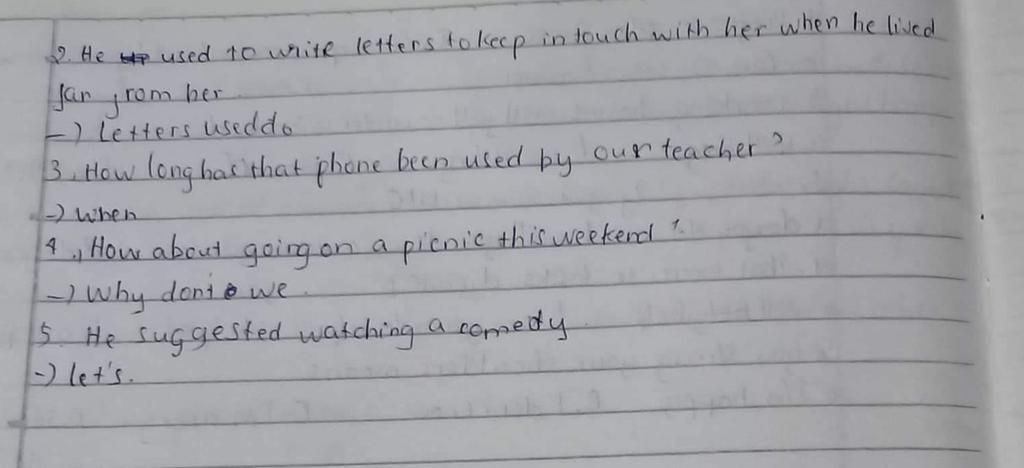 2. He used to write letters to keep in touch with her when he lived
far from her
-) Letters used to
3. How long has that phone been used by our teacher?
-) when
4., How about going on a picnic this weekend?
-) Why don't we
5. He suggested watching a comedy.
-) let's.